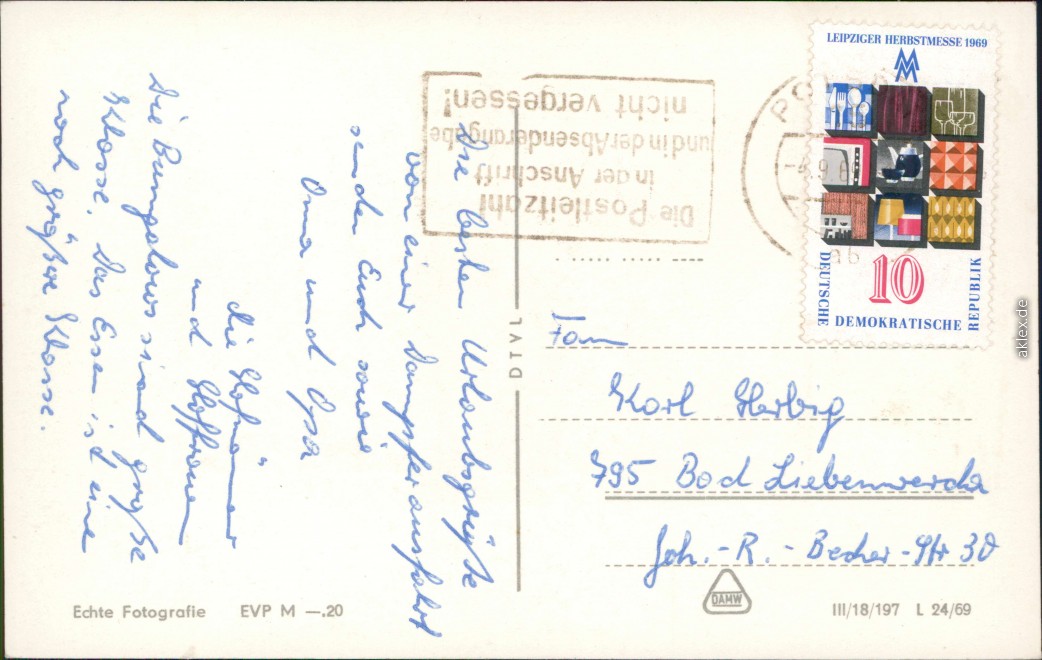 Die besten Urlaubsgrüße
von einer Dampferausfahrt
senden Euch sowie
Oma und Opa
die Hofmänner
und Hoffrauen
Die Bungalows sind große
Klasse. Das Essen ist eine
noch größere Klasse.
Die Postleitzahl
in der Anschrift
und in der Absenderangabe
nicht vergessen!
LEIPZIGER HERBSTMESSE 1969
MM
10
DEUTSCHE DEMOKRATISCHE REPUBLIK
DTVL
Fam
Karl Herbig
795 Bad Liebenwerda
Joh.-R.-Becher-Str 30
Echte Fotografie EVP M —.20
DAMW
III/18/197 L 24/69
aklex.de